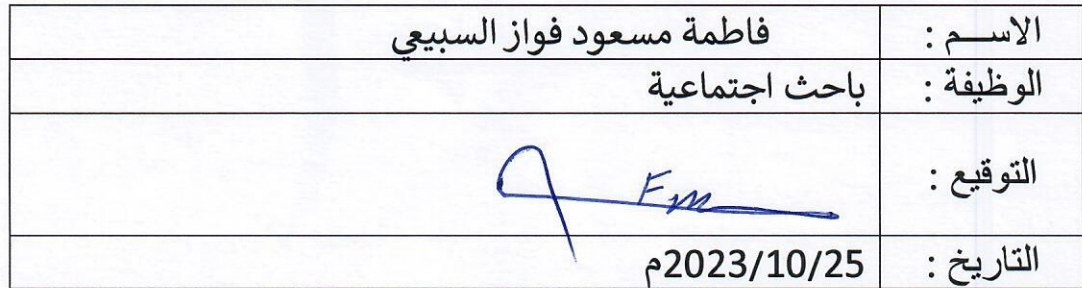 الاســـم : فاطمة مسعود فواز السبيعي
الوظيفة : باحث اجتماعية
التوقيع : Fm
التاريخ : 2023/10/25م